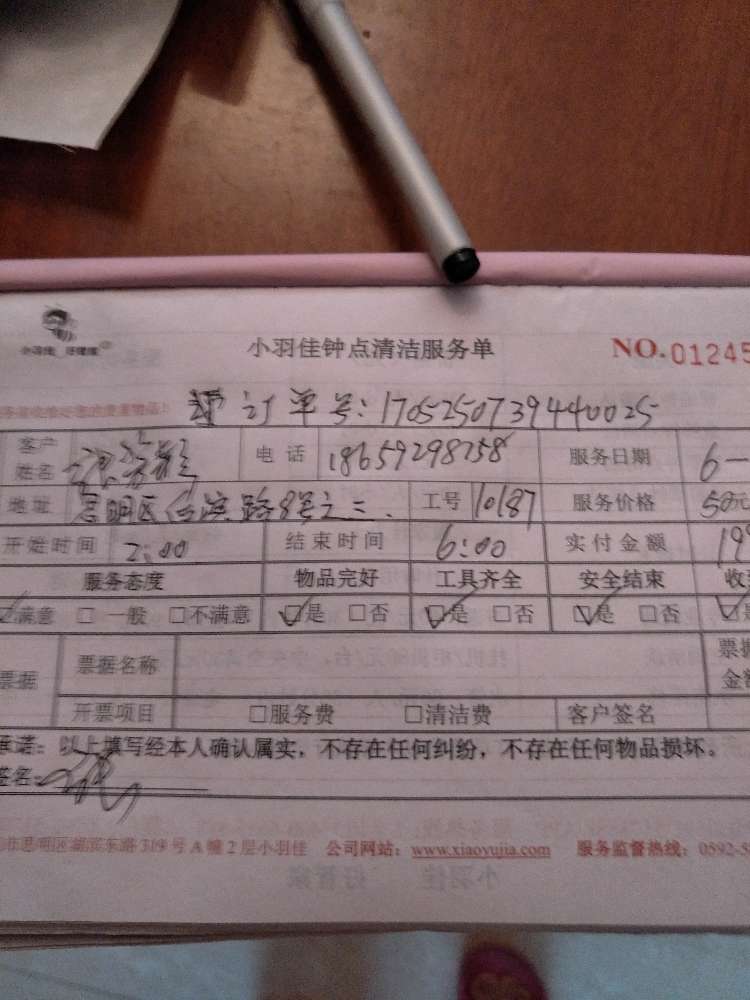 小羽佳 好管家
小羽佳钟点清洁服务单 NO.01245
订单号:1705250739440025
客户姓名 电话 18659298758 服务日期 6-
地址 思明区 路8号之三. 工号 10187 服务价格 50元
开始时间 2:00 结束时间 6:00 实付金额 19
服务态度 物品完好 工具齐全 安全结束 收
满意 □一般 □不满意 是 □否 是 □否 是 □否
票据 票据名称 票据金额
开票项目 □服务费 □清洁费 客户签名
承诺:以上填写经本人确认属实,不存在任何纠纷,不存在任何物品损坏。
签名:
思明区湖滨东路319号A幢2层小羽佳 公司网站:www.xiaoyujia.com 服务监督热线:0592-5